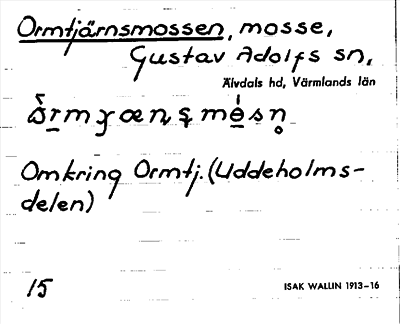 Ormtjärnsmossen, mosse,
Gustav Adolfs sn,
Älvdals hd, Värmlands län
Omkring Ormtj. (Uddeholms-
delen)
15
ISAK WALLIN 1913–16